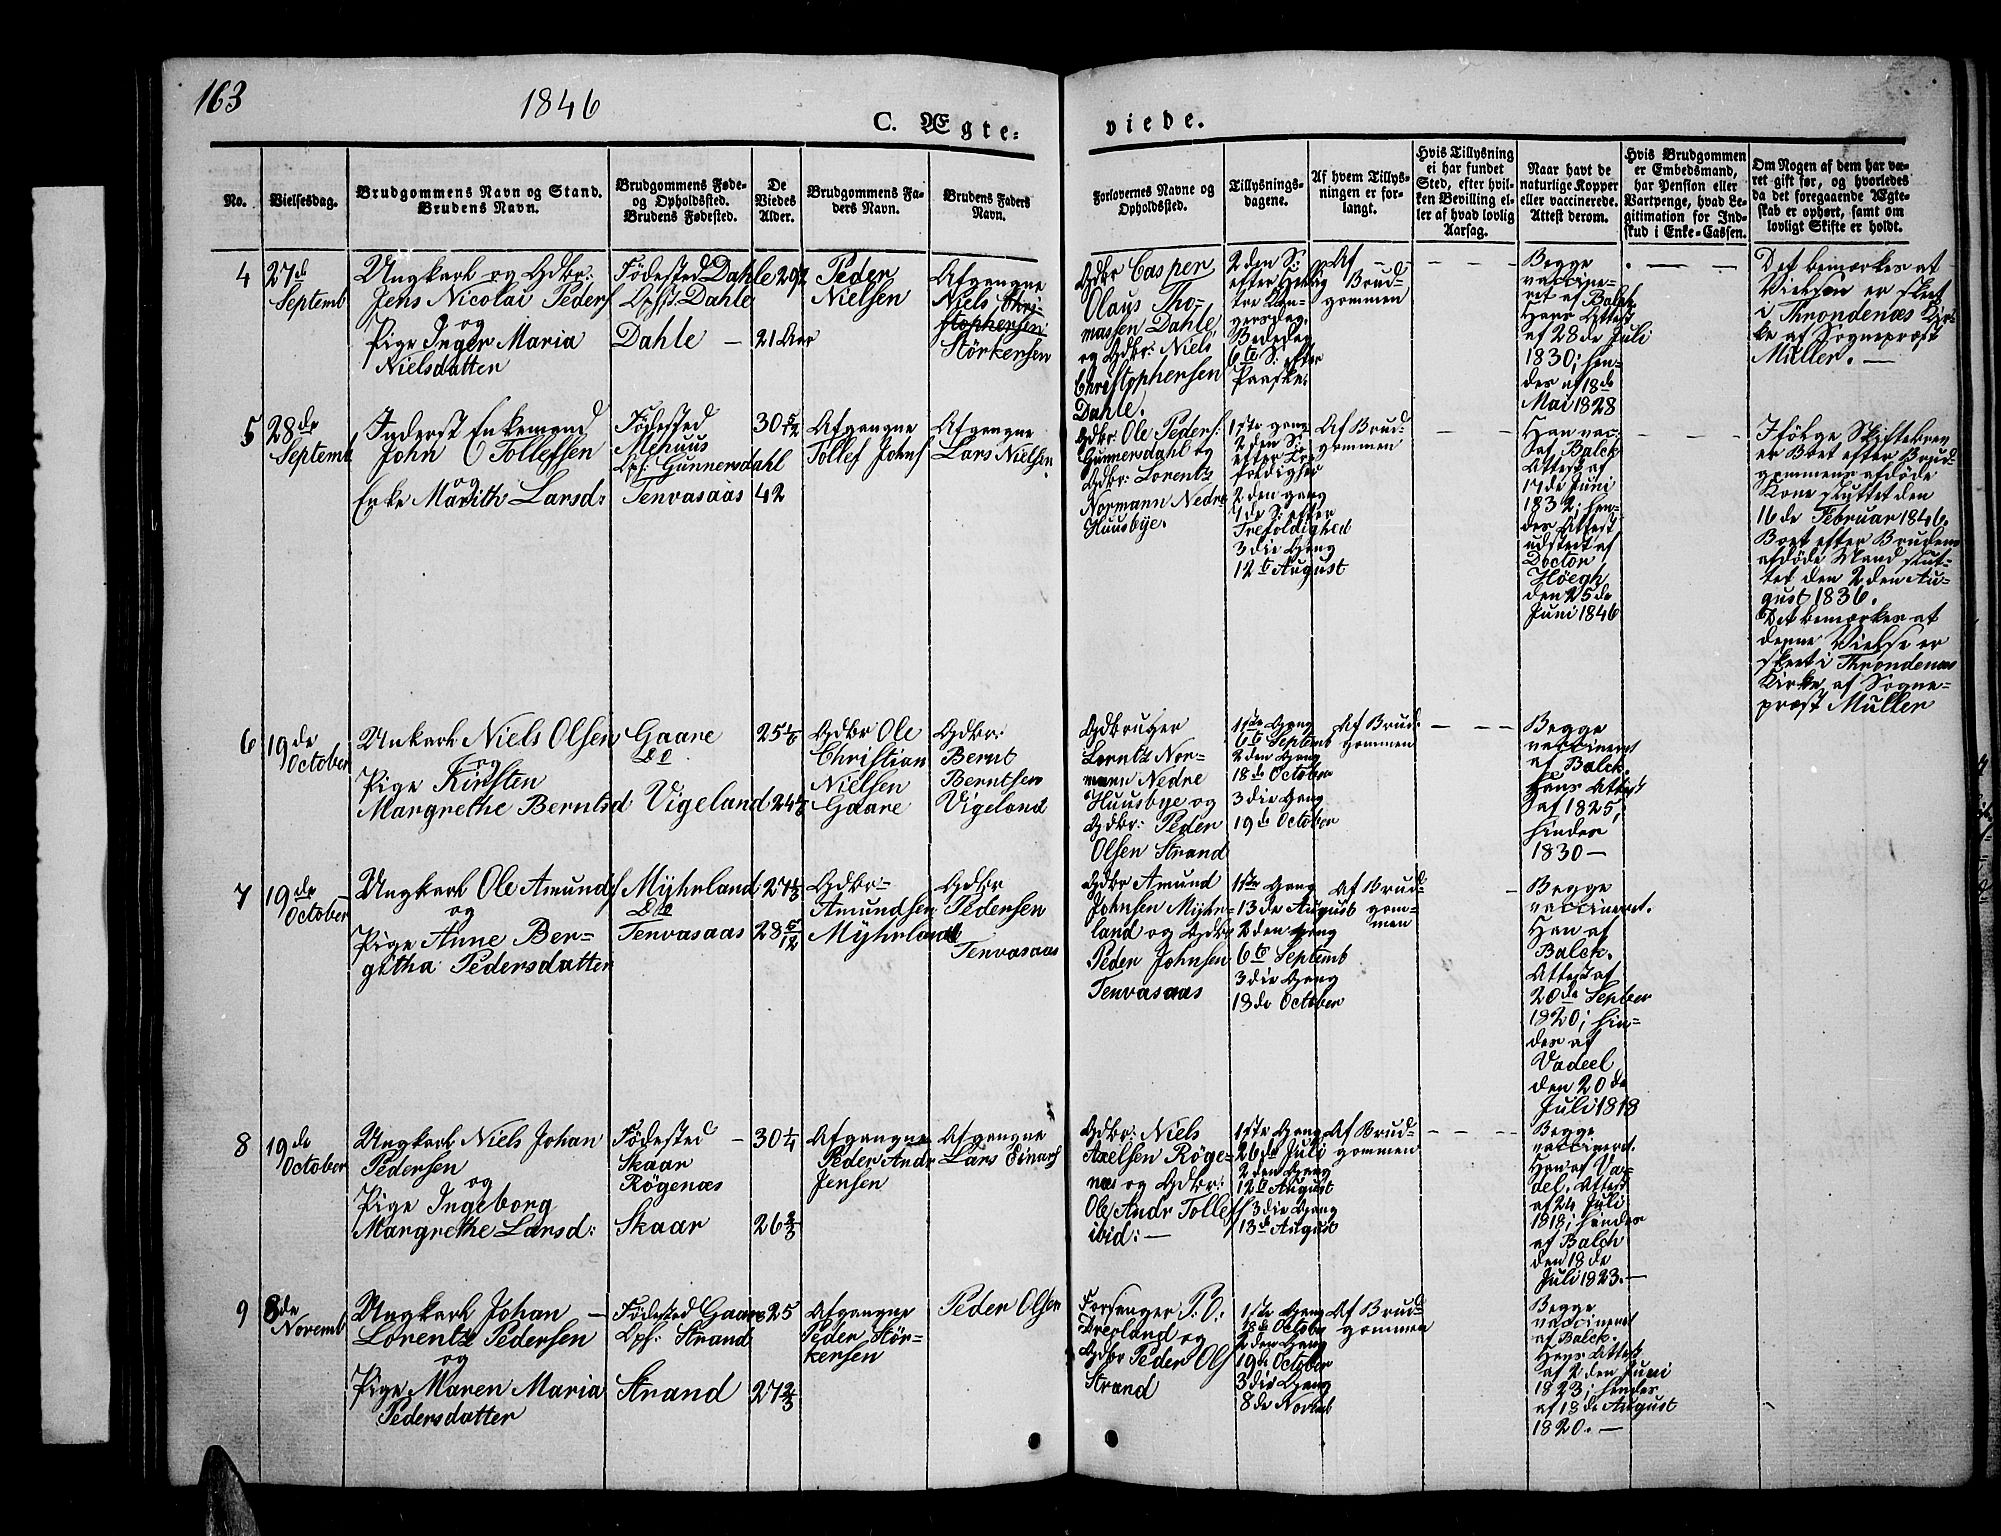 163
1846
C. Ægte=
viede.
No.
Vielsesdag.
Brudgommens Navn og Stand.
Brudens Navn.
Brudgommens Føde-
og Opholdssted.
Brudens Fødested.
De
Viedes
Alder.
Brudgommens Fa-
ders Navn.
Brudens Faders
Navn.
Forlovernes Navne og
Opholdssted.
Tillysnings-
dagene.
Af hvem Tillys-
ningen er for-
langt.
Hvis Tillysning
ei har fundet
Sted, efter hvil-
ken Bevilling el-
ler af hvad lovlig
Aarsag.
Naar havt de
naturlige Kopper
eller vaccinerede.
Attest derom.
Hvis Brudgommen
er Embedsmand,
har Pension eller
Vartpenge, hvad Le-
gitimation for Ind-
skud i Enke-Cassen.
Om Nogen af dem har væ-
ret gift før, og hvorledes
da det foregaaende Ægte-
skab er ophørt, samt om
lovligt Skifte er holdt.
4
27de
Septemb
Ungkarl og Gdbr:
Jens Nicolai Peders
og
Pige Inger Maria
Nielsdatter
Fødested Dahle
Opst Dahle
Dahle —
29½
21 Aar
Peder
Nielsen
Afgangne
Niels Chri-
stophersen
Störkersen
Gdbr Casper
Olaus Tho-
massen Dahle,
og Gdbr: Niels
Christophersen
Dahle.
2den S:
efter Hellig
tre Kon-
gersdag.
Bededag
6te S: efter
Paaske.
Af
Brud-
gommen
Begge
vaccine-
ret af Balck
Hans Attest
af 28de Juli
1830; hen-
des af 18de
Mai 1828
Det bemærkes at
Vielsen er skeet
i Throndenæs Kir-
ke af Sognepræst
Müller. —
5
28de
Septemb
Inderst Enkemand
John O Tollefsen
og
Enke Marith Larsd:
Fødested
Mehuus
Opf: Gunnersdahl
Tenvasaas
30 5/12
42
Afgangne
Tollef Johns
Afgangne
Lars Nielsen
Gdbr: Ole Peders:
Gunnersdahl og
Gdbr: Lorentz
Normann Nedre
Huusbye.
1ste gang
2den S:
efter Tre-
foldighed
2den gang
1de S: efter
Trefoldighed
3die Gang
12te August
Af Brud-
gommen
Han vac:
af Balck
Attest af
17de Juni
1832; hen-
des Attest
udstedt af
Doctor
Høegh
den 25de
Juni 1846
Ifølge Skiftebrev
er Boet efter Brud-
gommens afdøde
Kone sluttet den
16de Februar 1846.
Boet efter Brudens
afdøde Mand slut-
tet den 2den Au-
gust 1836.
Det bemærkes at
denne Vielse er
skeet i Throndenæs
Kirke af Sogne-
præst Müller
6
19de
October
Unkarl Niels Olsen
og
Pige Kirsten
Margrethe Berntsd
Gaare
Do.
Vigeland
25 1/6
24
Gdbr Ole
Christian
Nielsen
Gaare
Gdbr:
Bernt
Berntsen
Vigeland
Gdbruger
Lorntz Nor-
mann Nedre
Huusbye og
Gdbr: Peder
Olsen Strand
1ste Gang
6te Septemb
2den Gang
18de October
3die Gang
19de October
Af Brud-
gommen
Begge
vaccineret
af Balck.
Hans Attest
af 1825,
hindes
1830 —
7
19de
October
Ungkarl Ole Amunds
og
Pige Anne Ber-
githa Pedersdatter
Myhrland
Do
Tenvasaas
27
28 5/12
Gdbr-
Amundsen
Myhrland
Gdbr
Pedersen
Tenvasaas
Gdbr Amund
Johnsen Myhr-
land og Gdbr
Peder Johnsen
Tenvasaas
1ste Gang
13de August
2den gang
6te Septemb
3die Gang
18de October
Af Brud-
gom-
men
Begge
vaccineret.
Han af
Balck.
Attest af
20de Septber
1820; hin-
des af
Vadeel
den 20de
Juli 1818
8
19de
October
Ungkarl Niels Johan
Pedersen
og
Pige Ingeborg
Margrethe Larsd:
Fødested —
Skaar
Rögenæs
Skaar
30 1/4
26 2/3
Afgangne
Peder Andr
Jensen
Afgangne
Lars Einars
Gdbr: Niels
Axelsen Röge-
næs og Gdbr:
Ole Andr Tollefs
ibid: —
1ste Gang
26de Juli
2den Gang
12te August
3die Gang
13de August
Af Brud-
gommen
Begge
vaccineret.
Han af Va-
del. Attest
af 24 Juli
1818; hindes
af Balch
den 18de
Juli 1823. —
9
8de
Novemb
Ungkarl Johan —
Lorentz Pedersen
og
Pige Maren Maria
Pedersdatter
Fødested Gaare
Opf: Strand
Strand
25
27 2/3
Afgangne
Peder Stör-
kersen
Peder Olsen
Forsanger P. O:
Dreyland og
Gdbr Peder Ols
Strand
1ste Gang
18de October
2den Gang
19de October
3die Gang
8de Novemb
Af Brud-
gommen
Begge
vaccineret
af Balck.
Hans Attest
af 2den Juni
1823; hendes
af 18de August
1820. —